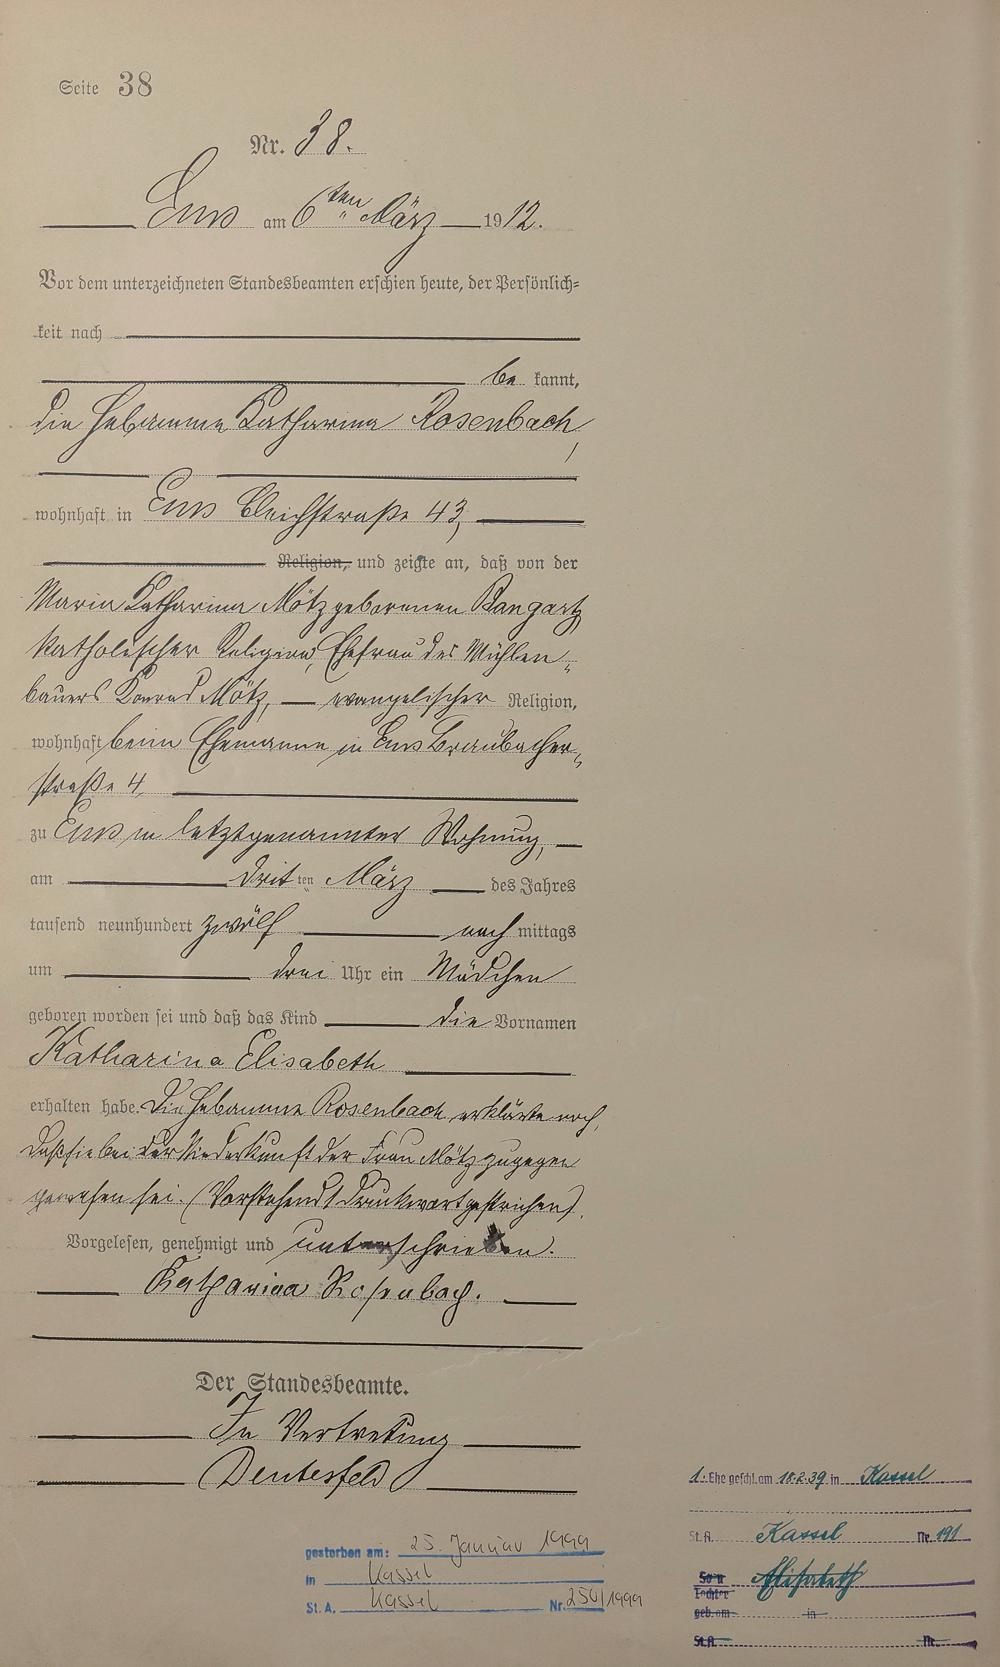 Seite 38
Nr. 38.
Ems am 6ten März 1912.
Vor dem unterzeichneten Standesbeamten erschien heute, der Persönlich=
keit nach
be kannt,
die Hebamme Katharina Rosenbach,
wohnhaft in Ems Bleichstraße 43,
Religion, und zeigte an, daß von der
Maria Katharina Mötz geborenen Bangartz
katholischer Religion, Ehefrau des Mühlen„
bauers Konrad Mötz, evangelischer Religion,
wohnhaft beim Ehemanne in Ems Braubacher„
straße 4,
zu Ems in letztgenannter Wohnung,
am dritten März des Jahres
tausend neunhundert zwölf nachmittags
um drei Uhr ein Mädchen
geboren worden sei und daß das Kind die Vornamen
Katharina Elisabeth
erhalten habe. Die Hebamme Rosenbach erklärte noch,
daß sie bei der Niederkunft der Frau Mötz zugegen
gewesen sei. (Vorstehend 1 Druckwort gestrichen).
Vorgelesen, genehmigt und unterschrieben.
Katharina Rosenbach.
Der Standesbeamte.
In Vertretung
Deutesfeld
1. Ehe geschl. am 18.2.39 in Kassel
St.A. Kassel Nr. 191
Sohn Elisabeth
Tochter
geb. am in
St.A. Nr.
gestorben am: 25. Januar 1999
in Kassel
St. A. Kassel Nr. 250/1999